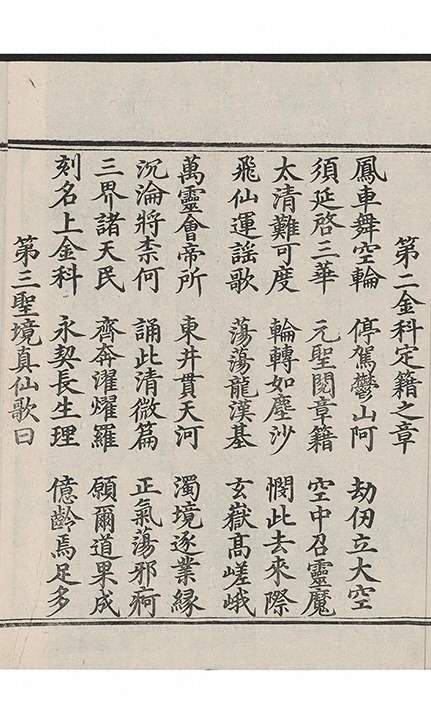 第二金科定籍之章
鳳車舞空輪　停駕鬱山阿　劫仞立大空
須延啓三華　元聖閱章籍　空中召靈魔
太清難可度　輪轉如塵沙　憫此去來際
飛仙運謡歌　蕩蕩龍漢基　玄嶽髙嵯峨
萬靈會帝所　東井貫天河　濁境逐業緣
沉淪將柰何　誦此清微篇　正氣蕩邪痾
三界諸天民　齊奔濯燿羅　願爾道果成
刻名上金科　永契長生理　億齡焉足多
第三聖境真仙歌曰